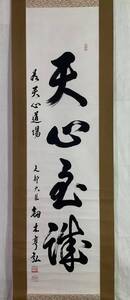 天心至誠
為天心道場
文部大臣
剱木亨弘